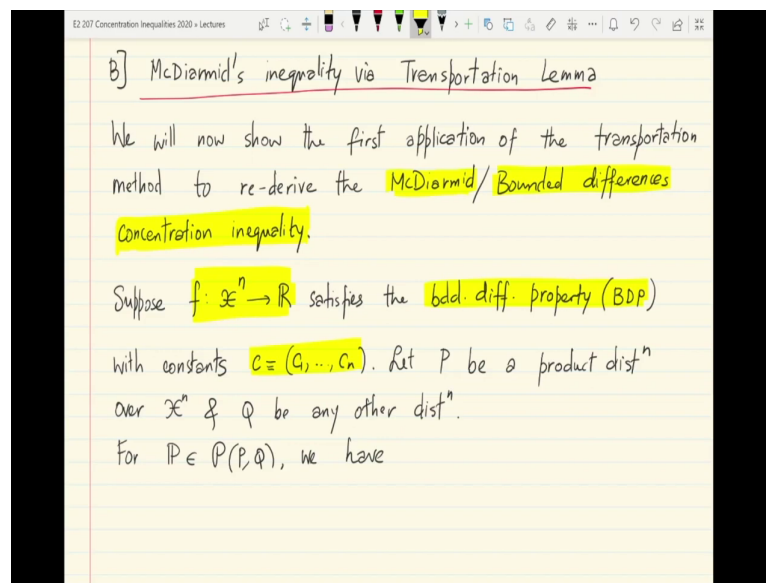 E2 207 Concentration Inequalities 2020 » Lectures
B] McDiarmid's inequality via Transportation Lemma
We will now show the first application of the transportation
method to re-derive the McDiarmid/Bounded differences
concentration inequality.
Suppose f: 𝒳ⁿ → ℝ satisfies the bdd. diff. property (BDP)
with constants c ≡ (c₁, .., cₙ). Let P be a product distⁿ
over 𝒳ⁿ & Q be any other distⁿ.
For ℙ ∈ 𝒫(P,Q), we have